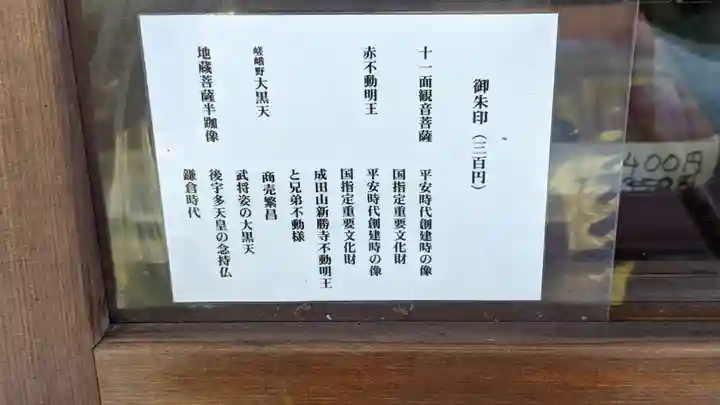 御朱印(三百円)
十一面観音菩薩
平安時代創建時の像
国指定重要文化財
赤不動明王
平安時代創建時の像
国指定重要文化財
成田山新勝寺不動明王
と兄弟不動様
嵯峨野大黒天
商売繁昌
武将姿の大黒天
地蔵菩薩半跏像
後宇多天皇の念持仏
鎌倉時代
400円